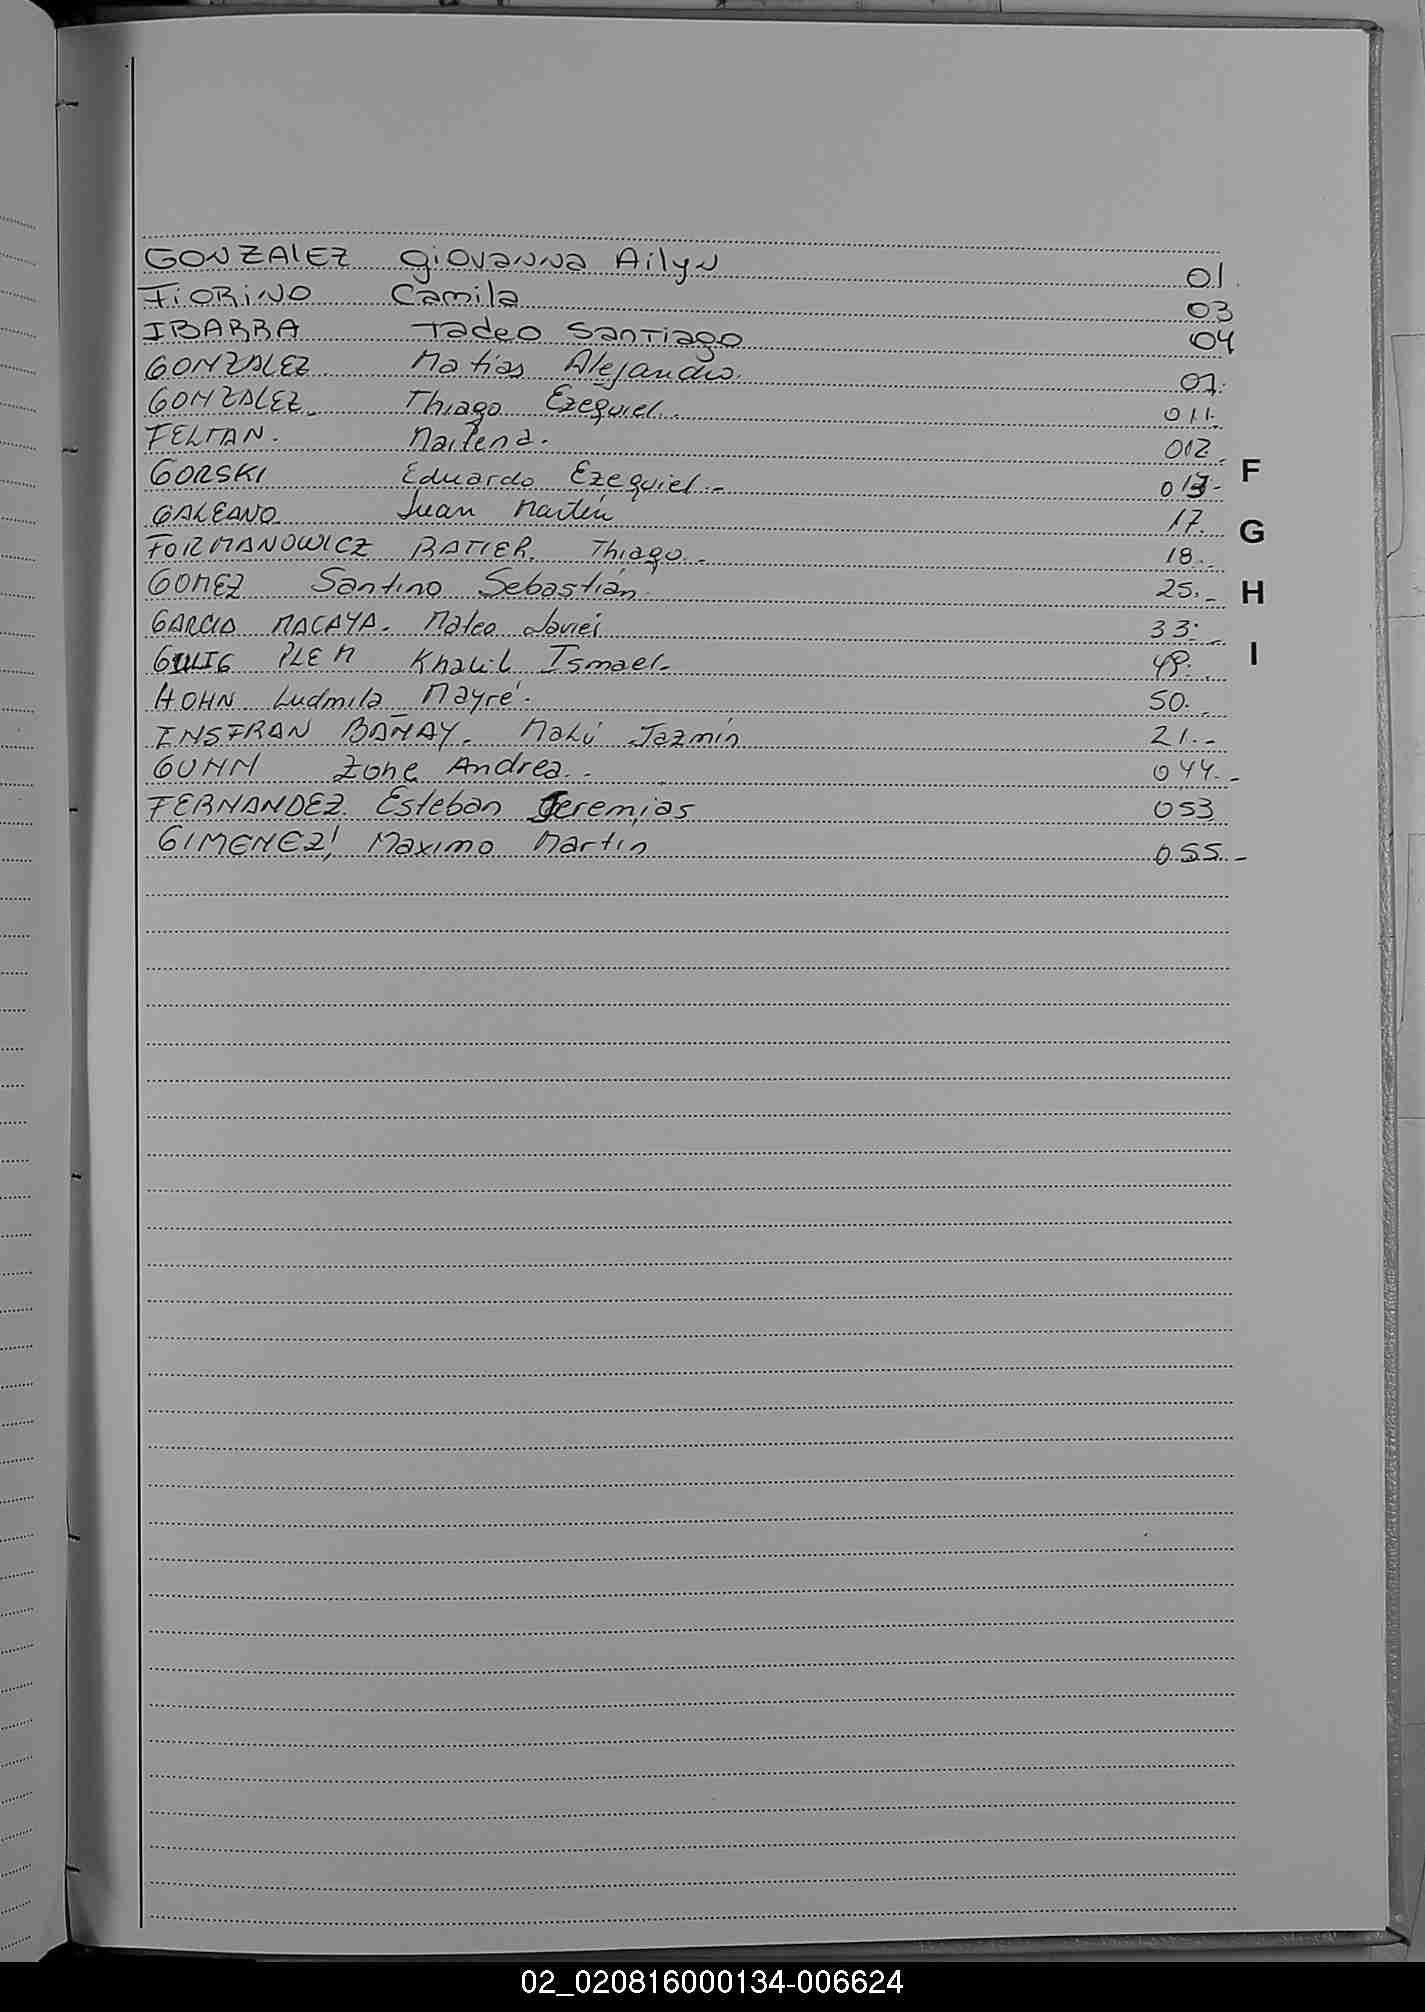 GONZALEZ Giovanna Ailyn 01
FIORINO Camila 03
IBARRA Tadeo Santiago 04
GONZALEZ Matias Alejandro. 07.
GONZALEZ. Thiago Ezequiel. 011.
FELTAN. Mailena. 012.
GORSKI Eduardo Ezequiel.- 013-
F
GALEANO Juan Martín 17.
G
FORMANOWICZ RATIER. Thiago.- 18.-
GOMEZ Santino Sebastián. 25.-
H
GARCIA MACAYA. Mateo Javier 33.-
PLEM Khalil Ismael.
I
HOHN Ludmila Mayré. 50.
INSFRAN BAÑAY. Malú Jazmín 21.-
GUNN Zohe Andrea.. 044.-
FERNANDEZ. Esteban Jeremias 053
GIMENEZ, Maximo Martin 055.-
02_020816000134-006624